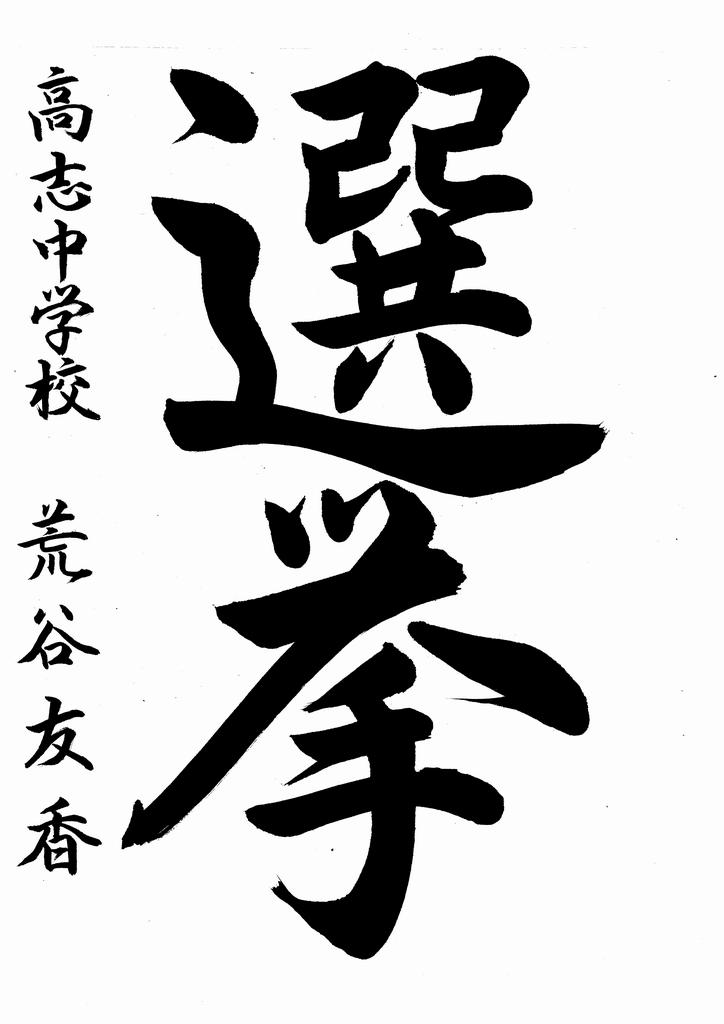 選挙
高志中学校 荒谷友香